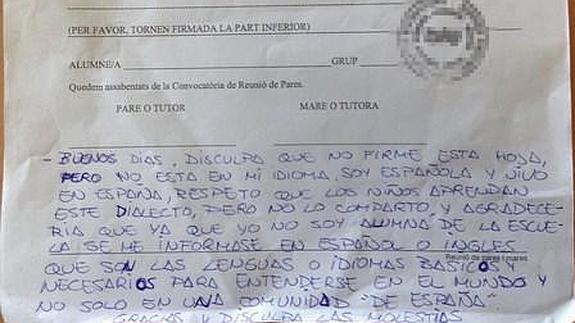 (PER FAVOR, TORNEN FIRMADA LA PART INFERIOR)
ALUMNE/A GRUP
Quedem assabentats de la Convocatòria de Reunió de Pares.
PARE O TUTOR MARE O TUTORA
- BUENOS DIAS, DISCULPA QUE NO FIRME ESTA HOJA,
PERO NO ESTA EN MI IDIOMA, SOY ESPAÑOLA Y VIVO
EN ESPAÑA, RESPETO QUE LOS NIÑOS APRENDAN
ESTE DIALECTO, PERO NO LO COMPARTO Y AGRADECE-
RIA QUE YA QUE YO NO SOY ALUMNA DE LA ESCUE-
LA SE ME INFORMASE EN ESPAÑOL O INGLES
Reunió de pares i mares
QUE SON LAS LENGUAS O IDIOMAS BASICOS Y
NECESARIOS PARA ENTENDERSE EN EL MUNDO Y
NO SOLO EN UNA COMUNIDAD "DE ESPAÑA".
GRACIAS Y DISCULPA LAS MOLESTIAS